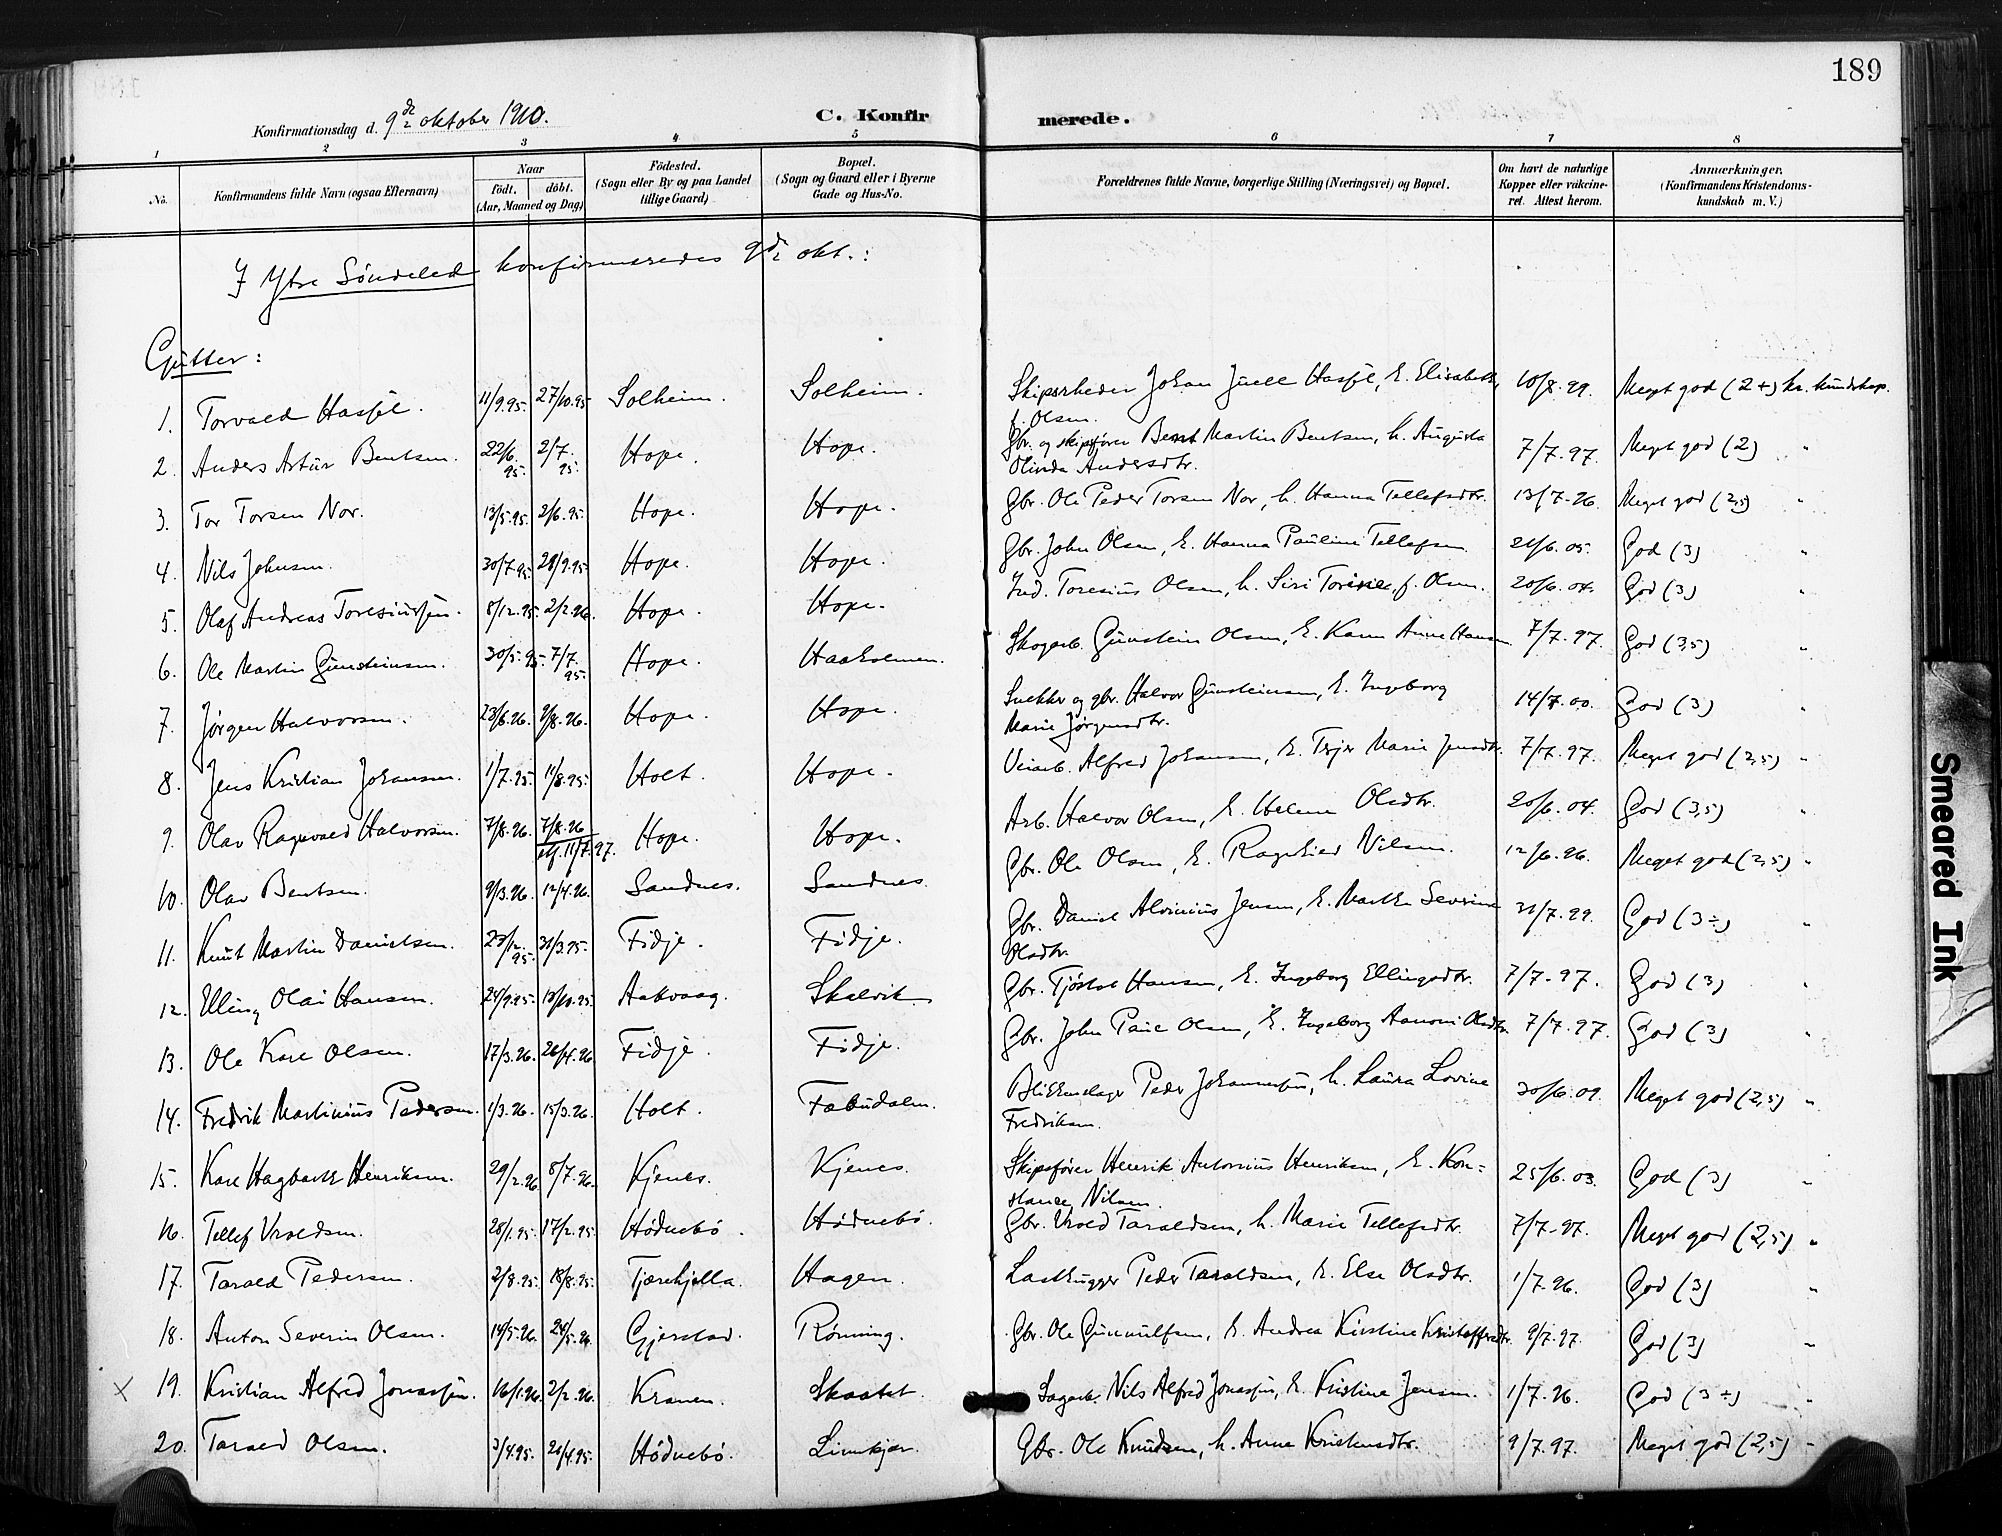 189
Konfirmationsdag d. 9de oktober 1910.
C. Konfirmerede.
1 2 3 4 5 6 7 8
No.
Konfirmandens fulde Navn (ogsaa Efternavn)
Naar
født. døbt.
(Aar, Maaned og Dag)
Födested.
(Sogn eller By og paa Landet
tillige Gaard)
Bopæl.
(Sogn og Gaard eller i Byerne
Gade og Hus-No.
Forældrenes fulde Navne, borgerlige Stilling (Næringsvei) og Bopæl.
Om havt de naturlige
Kopper eller vakcine-
ret. Attest herom.
Anmærkninger.
(Konfirmandens Kristendoms-
kundskab m. V.)
I Ytre Søndeled konfirmeredes 9de okt.:
Gutter:
1. Torvald Hasfjel. 11/9.95. 27/10.95 Solheim. Solheim. Skipsrheder Johan Juell Hasfjel, h. Elisabeth, 10/8.99. Meget god (2+) kr. kundskap.
f. Olsen.
2. Anders Artur Bentsen. 22/6. 95. 2/7. 95. Hope. Hope. Gbr. og skipsfører Bent Martin Bentsen, h. Augusta 7/7.97. Meget god (2) "
Olinda Andersdtr.
3. Tor Torsen Nor. 13/5.95. 2/6.95. Hope. Hope. Gbr. Ole Peder Torsen Nor, h. Hanna Tellefsdtr. 13/7.96. Meget god (2,5) "
4. Nils Johnsen. 30/7.95. 29/9.95. Hope. Hope. Gbr. John Olsen, h. Hanna Pauline Tellefsen. 21/6.05. God (3) "
5. Olaf Andreas Toresiussen. 8/12.95. 2/2.96. Hope. Hope. Ind. Toresius Olsen, h. Siri Torine, f. Olsen. 20/6.04. God (3) "
6. Ole Martin Gunsteinsen. 30/5.95. 7/7. 95. Hope. Haaholmen. Skogarb. Gunstein Olsen, h. Karen Anne Hansen 7/7.97. God (3,5) "
7. Jørgen Halvorsen. 23/6.96. 9/8.96. Hope. Hope. Snekker og gbr. Halvor Gunsteinsen, h. Ingeborg 14/7.00. God (3) "
Marie Jørgensdtr.
8. Jens Kristian Johansen. 1/7.95. 11/8.95. Holt. Hope. Veiarb. Alfred Johansen, h. Terjer Marie Jensdtr. 7/7.97. Meget god (2,5) "
9. Olav Ragnvald Halvorsen. 7/8.96. 7/8.96 Hope. Hope. Arb. Halvor Olsen, h. Helene Olsdtr. 20/6.04. God (3,5) "
stf. 11/7.97.
10. Olav Bentsen. 9/3.96. 12/4.96. Sandnes. Sandnes. Gbr. Ole Olsen, h. Ragnhild Nilsen. 12/6.96. Meget god (2,5) "
11. Knut Martin Danielsen. 23/12. 95. 31/3.95. Fidje. Fidje. Gbr. Daniel Alvinius Jensen, h. Marthe Severine 31/7.99. God (3÷) "
Olsdtr.
12. Elling Olai Hansen. 24/9.95. 13/10.95. Aakvaag. Skalvik Gbr. Tjøstol Hansen, h. Ingeborg Ellingsdtr. 7/7.97. God (3) "
13. Ole Karl Olsen. 17/3.96. 26/4.96 Fidje. Fidje. Gbr. John Paul Olsen, h. Ingeborg Aanoni Olsdtr. 7/7.97. God (3) "
14. Fredrik Martinius Pedersen. 1/3.96. 15/3.96. Holt. Febudalen. Blikkenslager Peder Johannessen, h. Laura Lovine 30/6.09. Meget god (2,5) "
Fredriksen.
15. Karl Hagbart Henriksen. 29/2.96 5/7.96. Kjenes. Kjenes. Skipsfører Henrik Antonius Henriksen, h. Kon= 25/6.03. God (3) "
stance Nilsen.
16. Tellef Vroldsen. 28/1.95. 17/2.95. Hødnebø. Hødnebø. Gbr. Vrold Taraldsen, h. Marie Tellefsdtr. 7/7.97. Meget god (2,5) "
17. Tarald Pedersen. 2/8.95. 18/8.95. Tjærekjella. Hagen. Lasthugger Peder Taraldsen, h. Else Olsdtr. 1/7.96. God (3) "
18. Anton Severin Olsen. 14/5.96. 24/5.96. Gjerstad. Rønning. Gbr. Ole Gunnulfsen, h. Andrea Kirstine Kristoffersdtr. 9/7.97. God (3) "
× 19. Kristian Alfred Jonassen. 16/1.96. 2/2.96. Kranen. Skaatet. Sagarb. Nils Alfred Jonassen, h. Kristine Jensen. 1/7.96. God (3÷) "
20. Tarald Olsen. 3/4.95. 21/4.95. Hødnebø. Limkjær. Gbr. Ole Knudsen, h. Anne Kristensdtr. 9/7.97. Meget god (2,5) "
Smeared Ink